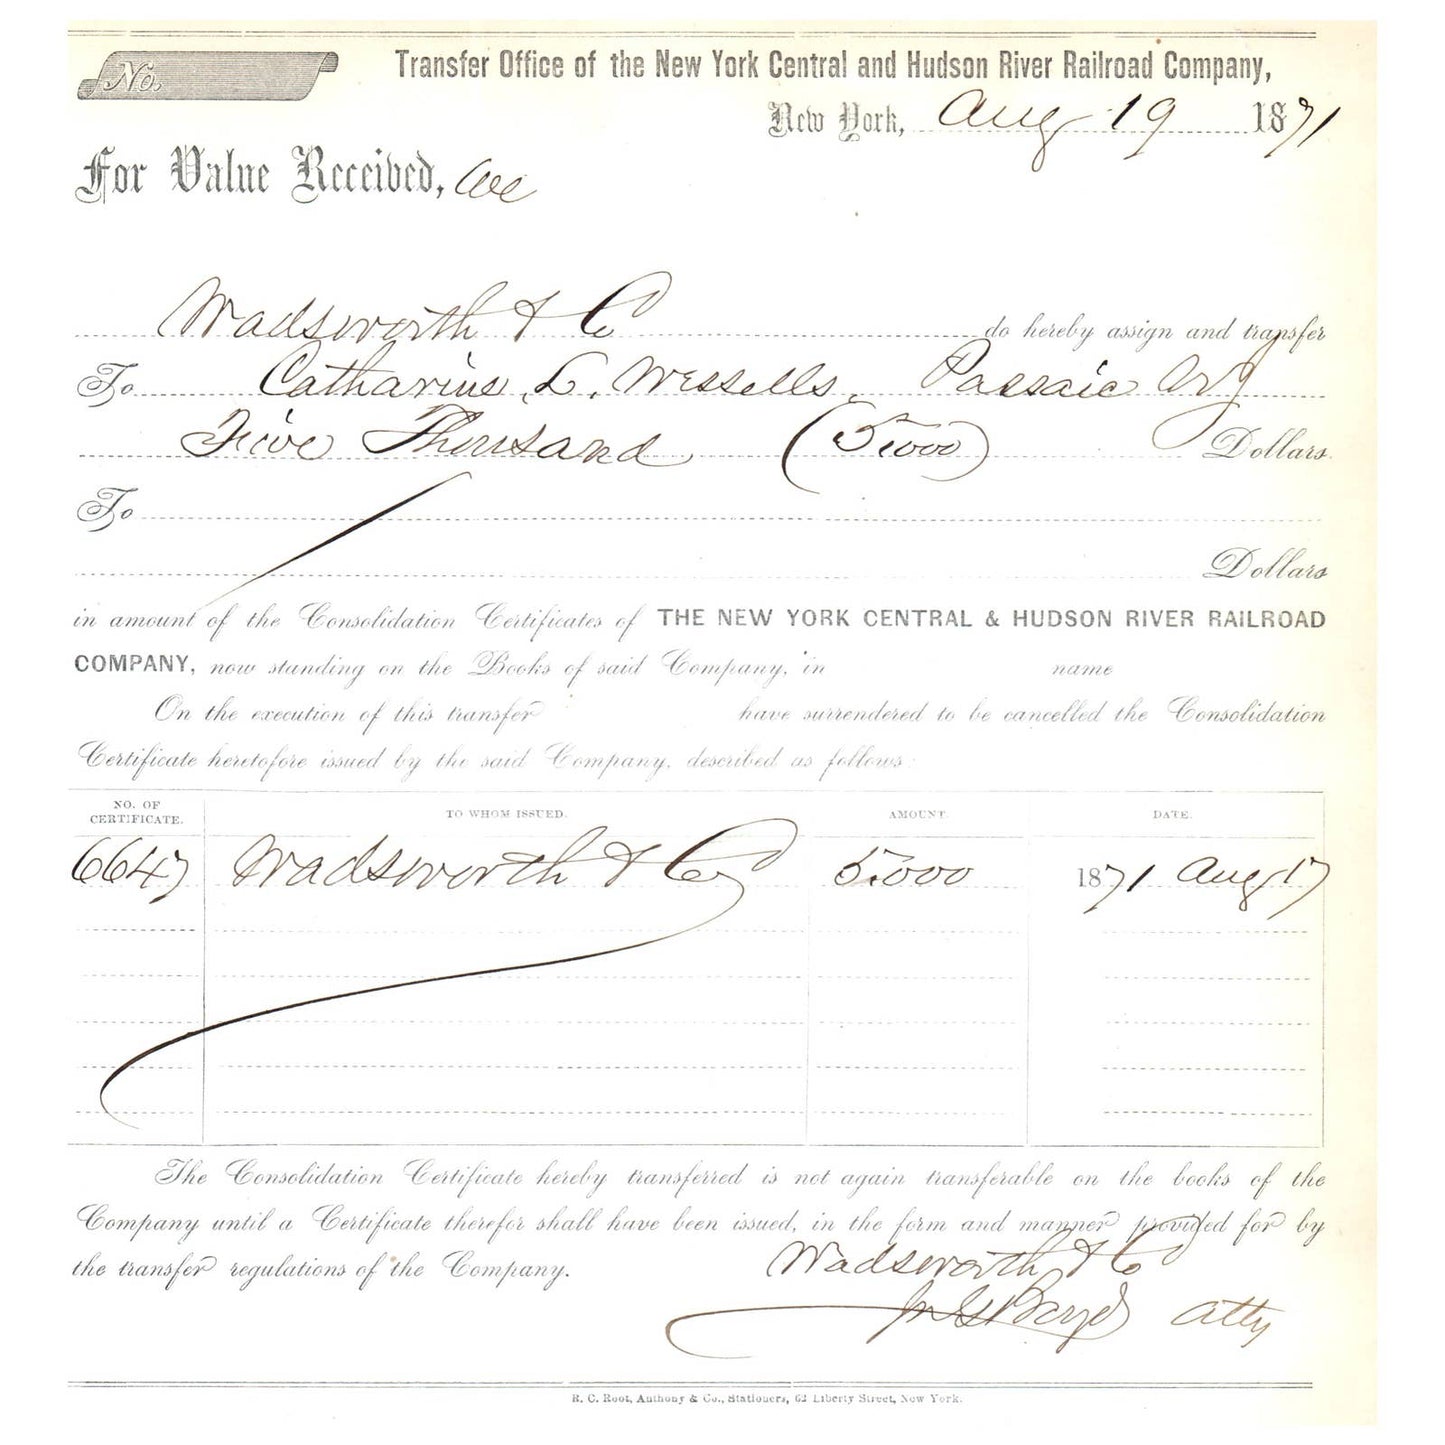 No.
Transfer Office of the New York Central and Hudson River Railroad Company,
New York, Aug 19 1871
For Value Received, we
Wadsworth & Co do hereby assign and transfer
To Catharine L. Wessells, Passaic NJ
Five Thousand (5,000) Dollars
To
Dollars
in amount of the Consolidation Certificates of THE NEW YORK CENTRAL & HUDSON RIVER RAILROAD
COMPANY, now standing on the Books of said Company, in name
On the execution of this transfer have surrendered to be cancelled the Consolidation
Certificate heretofore issued by the said Company, described as follows:
NO. OF CERTIFICATE. TO WHOM ISSUED. AMOUNT. DATE.
6647 Wadsworth & Co 5,000 1871 Aug 17
The Consolidation Certificate hereby transferred is not again transferable on the books of the
Company until a Certificate therefor shall have been issued, in the form and manner provided for by
the transfer regulations of the Company.
Wadsworth & Co
Boyd atty
R. C. Root, Anthony & Co., Stationers, 62 Liberty Street, New York.